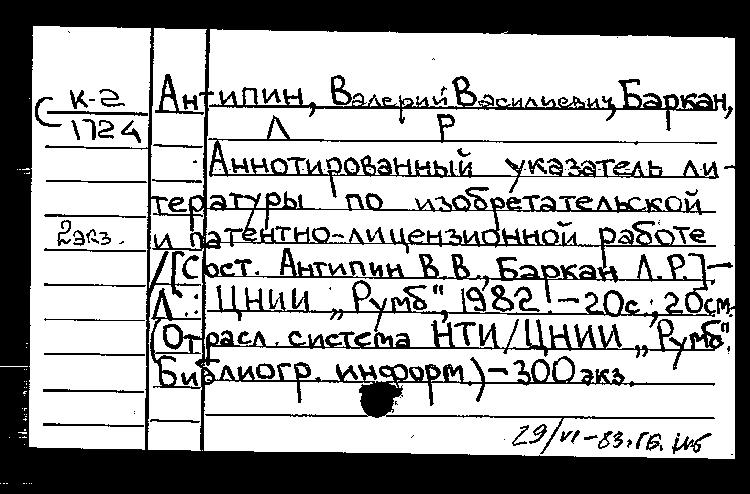 К-2
1724
Антипин, Валерий Василиевич, Баркан,
Л Р
Аннотированный указатель ли-
тературы по изобретательской
2 экз.
и патентно-лицензионной работе
/[Сост. Антипин В.В., Баркан Л.Р.]-
Л.: ЦНИИ „Румб", 1982!-20с.; 20см-
(Отрасл. система НТИ/ЦНИИ „Румб".
Библиогр. информ.)-300 экз.
29/VI-83.